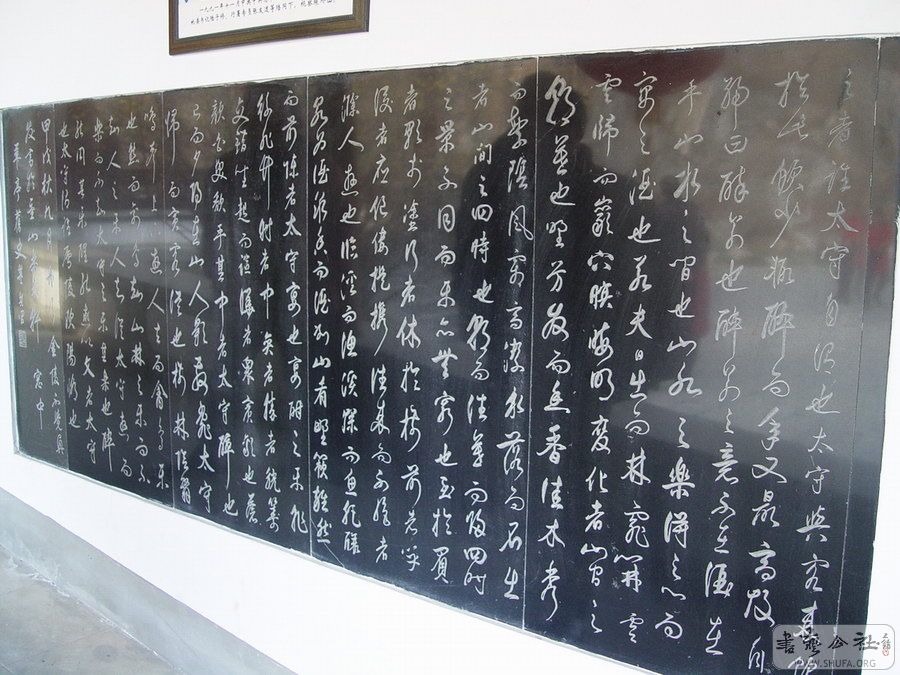 之者誰太守自謂也太守與客來飲
於此飲少輒醉而年又最高故自
號曰醉翁也醉翁之意不在酒在
乎山水之間也山水之樂得之心而
寓之酒也若夫日出而林霏開雲
雲歸而巖穴暝晦明變化者山間之
朝暮也野芳發而幽香佳木秀
而繁陰風霜高潔水落而石出
者山間之四時也朝而往暮而歸四時
之景不同而樂亦無窮也至於負
者歌於塗行者休於樹前者呼
後者應傴僂提攜往來而不絕者
滁人遊也臨溪而漁溪深而魚肥釀
泉為酒泉香而酒洌山肴野蔌雜然
而前陳者太守宴也宴酣之樂非
絲非竹射者中弈者勝觥籌
交錯坐起而諠譁者眾賓歡也蒼
顏白髮頹乎其中者太守醉也
已而夕陽在山人影散亂太守
歸而賓客從也樹林陰翳
鳴聲上下遊人去而禽鳥樂
也然而禽鳥知山林之樂而不
知人之樂人知從太守遊而
樂而不知太守之樂其樂也醉
能同其樂醒能述以文者太守
也太守謂誰廬陵歐陽修也
甲戌秋九月金陵
一九九一年十一月
書藝公社
WWW.SHUFA.ORG